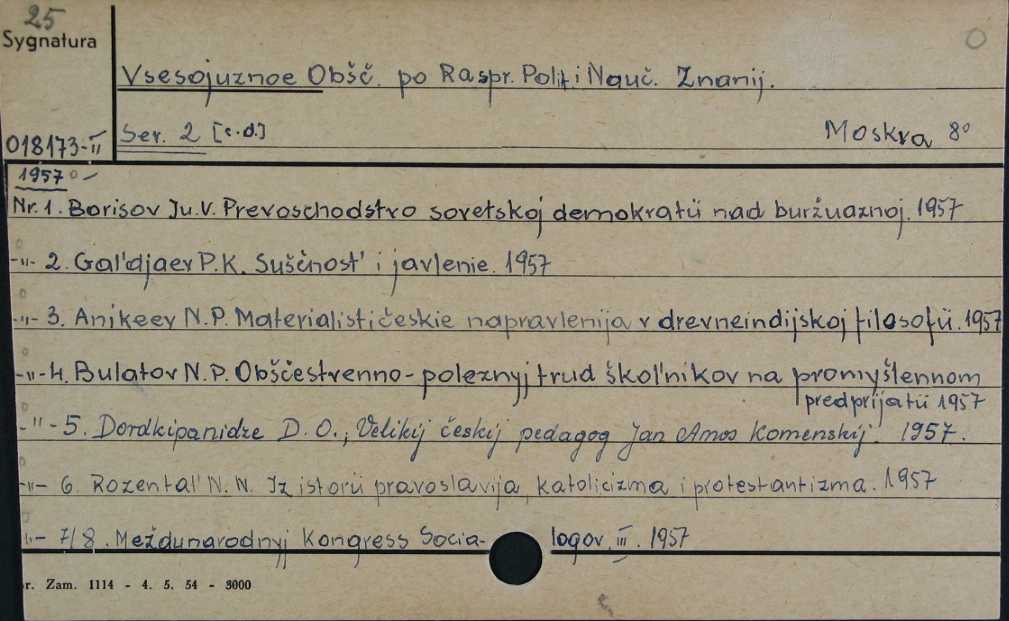 25
Sygnatura
Vsesojuznoe Obšč. po Raspr. Polit. i Nauč. Znanij.
018173-II
Ser. 2 [c.d.] Moskva 8°
1957
Nr. 1. Borisov Ju.V. Prevoschodstvo sovetskoj demokratii nad buržuaznoj. 1957
-"- 2. Gal'djaev P.K. Suščnost' i javlenie. 1957
-"- 3. Anikeev N.P. Materialističeskie napravlenija v drevneindijskoj filosofii. 1957
-"- 4. Bulatov N.P. Obščestvenno-poleznyj trud škol'nikov na promyšlennom
predprijatii 1957
-"- 5. Dordkipanidze D.O., Velikij češkij pedagog Jan Amos Komenskij. 1957.
-"- 6. Rozental' N.N. Iz istorii pravoslavija, katolicizma i protestantizma. 1957
-"- 7/8. Meždunarodnyj Kongress Socia- logov, III. 1957
r. Zam. 1114 - 4. 5. 54 - 3000